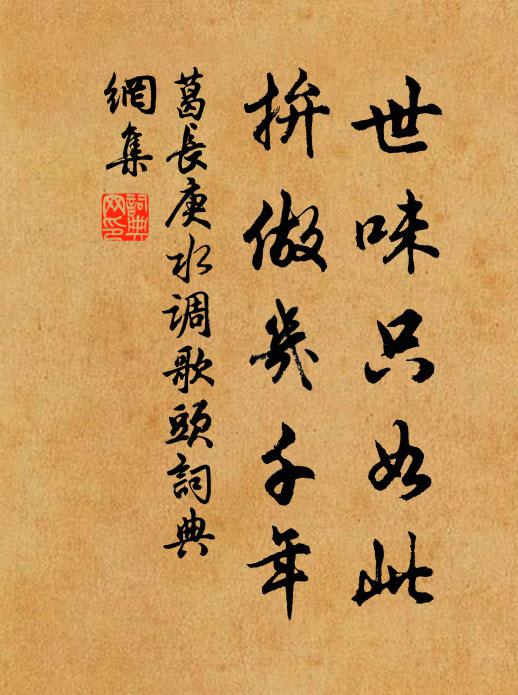 世味只如此
拚做幾千年
葛長庚水调歌頭詞典
網集
詞典
网印